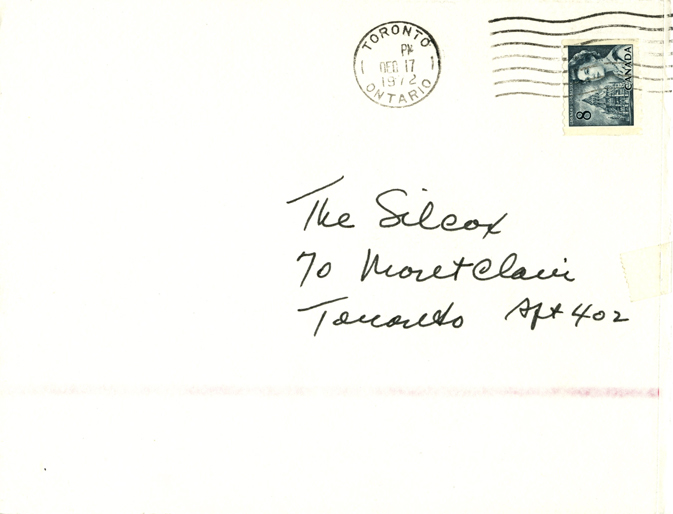 TORONTO
PM
DEC 17
1972
ONTARIO
CANADA
8
The Silcox
70 MontClair
Toronto Apt 402